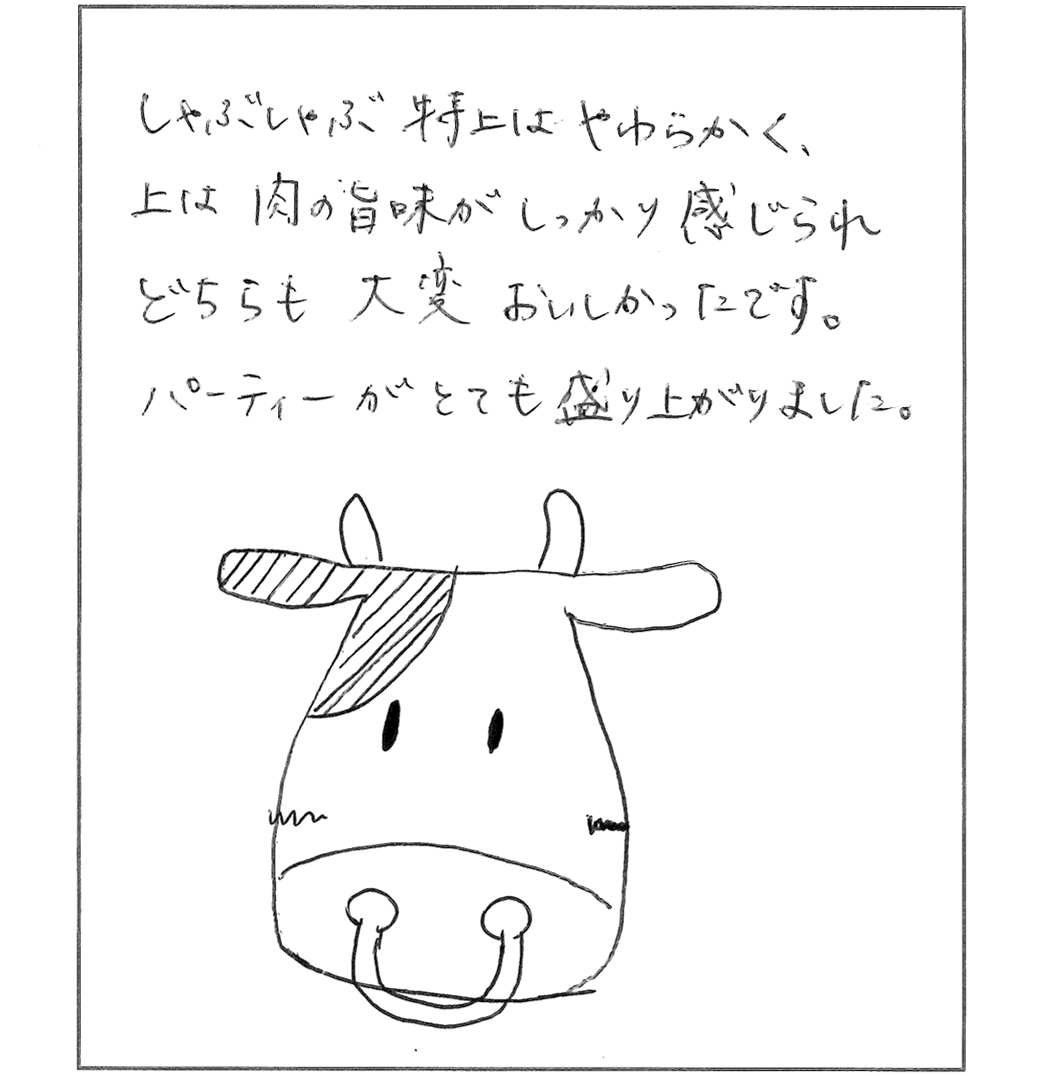 しゃぶしゃぶ 特上は やわらかく、
上は 肉の旨味が しっかり 感じられ
どちらも 大変 おいしかったです。
パーティーが とても 盛り上がりました。